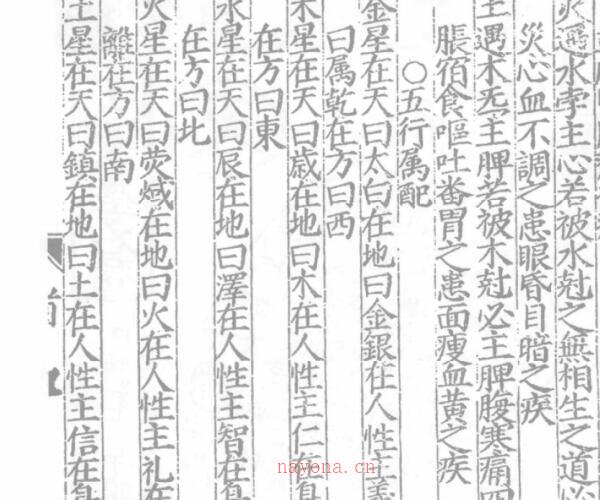 災遇水孛主心若被水尅之無相生之道必
災心血不調之患眼昏目暗之疾
主遇木炁主脾若被木尅必主脾腹寒痛
脹宿食嘔吐畨胃之患面瘦血黄之疾
〇五行属配
金星在天曰太白在地曰金銀在人性主義
曰属乾在方曰西
木星在天曰歳在地曰木在人性主仁在身
在方曰東
水星在天曰辰在地曰澤在人性主智在身
在方曰北
火星在天曰荧惑在地曰火在人性主礼在
離在方曰南
土星在天曰鎮在地曰土在人性主信在身
nayona.cn